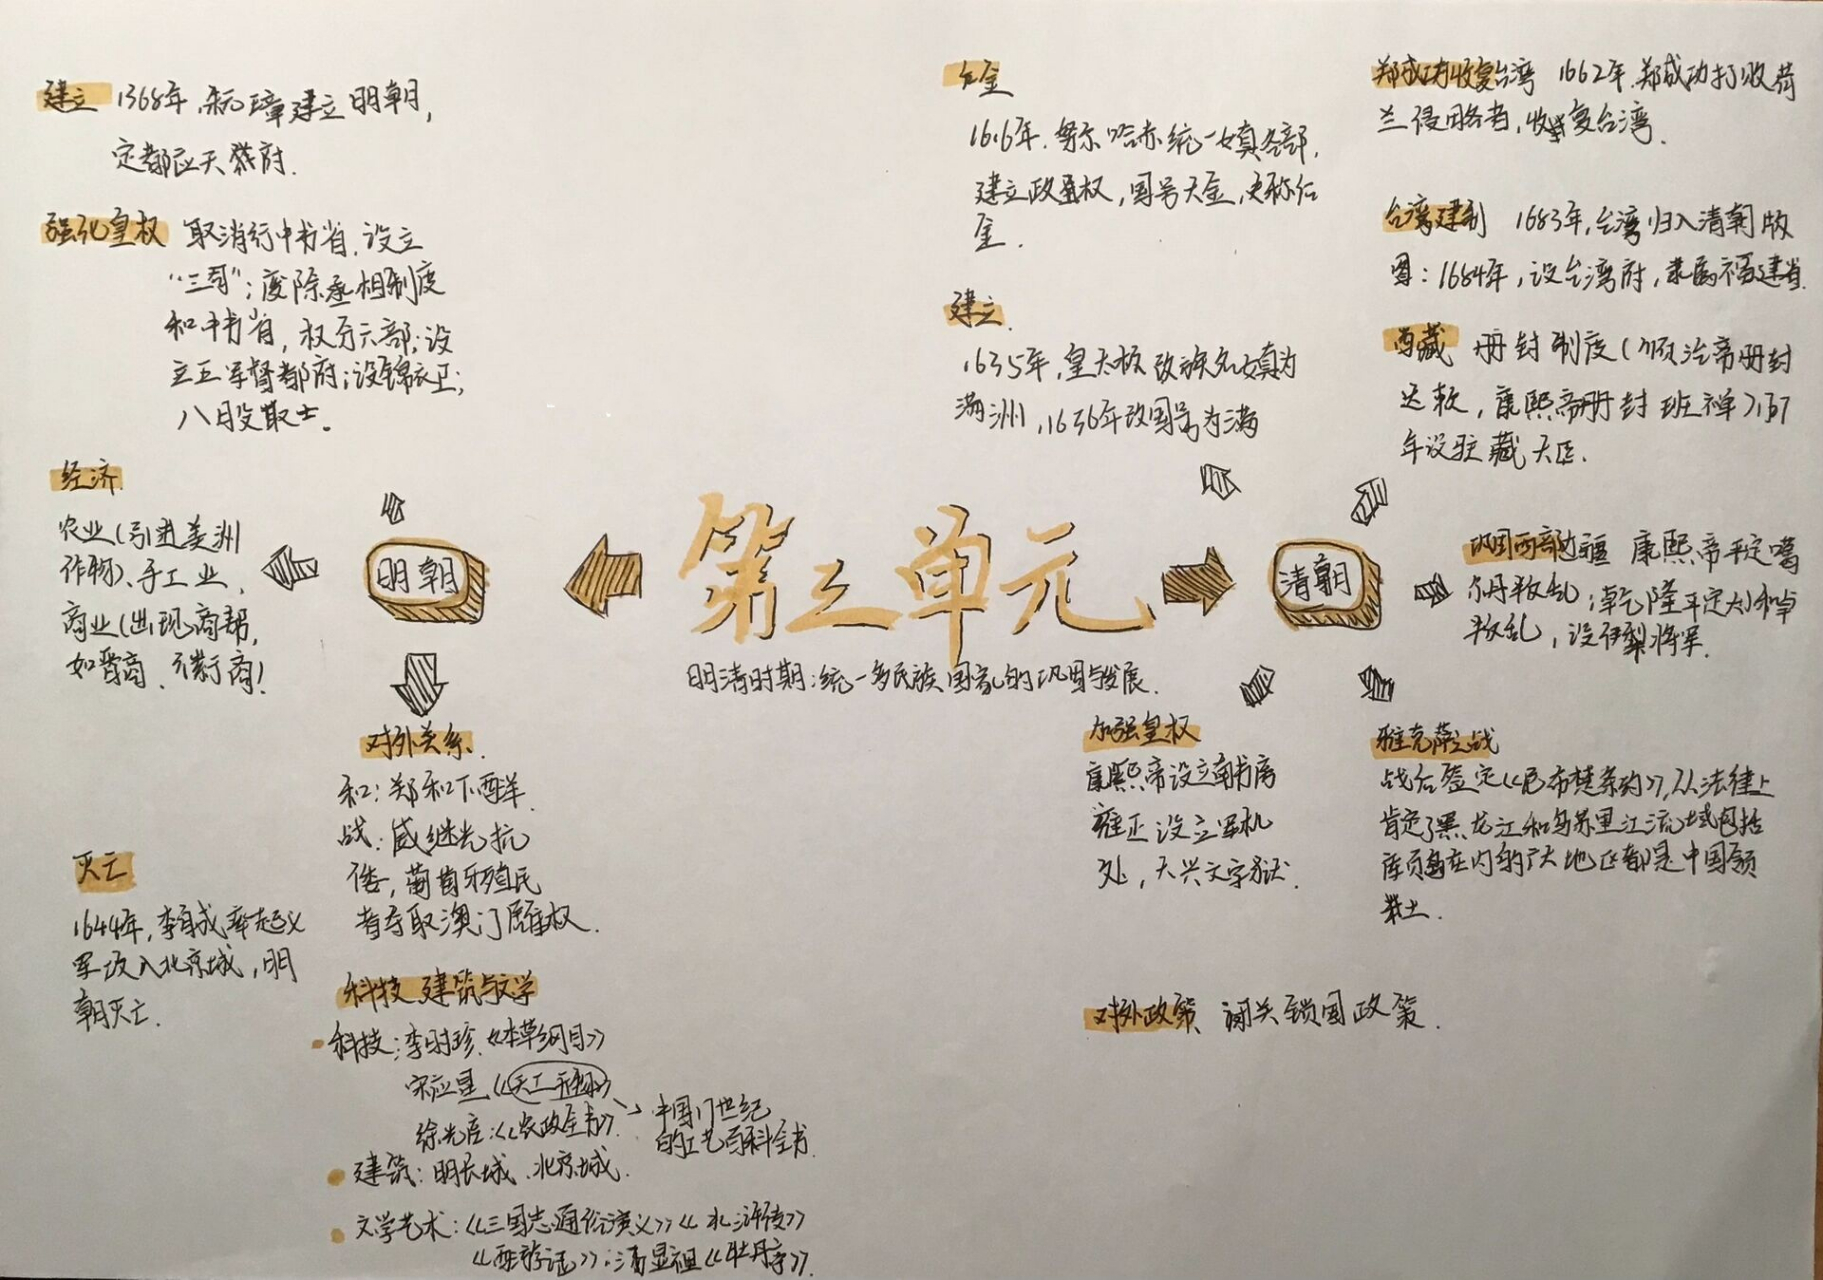 第三单元
明清时期:统一多民族国家的巩固与发展.
明朝
建立 1368年,朱元璋建立明朝,
定都应天府.
强化皇权 取消行中书省,设立
“三司”;废除丞相制度
和中书省,权分六部;设
立五军督都府;设锦衣卫;
八股取士.
经济
农业(引进美洲
作物)、手工业、
商业(出现商帮,
如晋商、徽商)
对外关系
和:郑和下西洋.
战:戚继光抗
倭,葡萄牙殖民
者夺取澳门居住权.
灭亡
1644年,李自成率起义
军攻入北京城,明
朝灭亡.
科技 建筑与文学
科技:李时珍《本草纲目》
宋应星《天工开物》
徐光启:《农政全书》
中国17世纪
的工艺百科全书
建筑:明长城、北京城.
文学艺术:《三国志通俗演义》《水浒传》
《西游记》;汤显祖《牡丹亭》.
清朝
后金
1616年,努尔哈赤统一女真各部,
建立政权,国号大金,史称后
金.
建立.
1635年,皇太极改族名女真为
满洲,1636年改国号为满
郑成功收复台湾 1662年,郑成功打败荷
兰侵略者,收复台湾.
台湾建制 1683年,台湾归入清朝版
图;1684年,设台湾府,隶属福建省.
西藏 册封制度(顺治帝册封
达赖,康熙帝册封班禅)
年设驻藏大臣.
巩固西部边疆 康熙帝平定噶
尔丹叛乱;乾隆平定大小和卓
叛乱,设伊犁将军.
加强皇权
康熙帝设立南书房
雍正设立军机
处,大兴文字狱.
雅克萨之战
战后签定《尼布楚条约》,从法律上
肯定了黑龙江和乌苏里江流域包括
库页岛在内的广大地区都是中国领
土.
对外政策 闭关锁国政策.